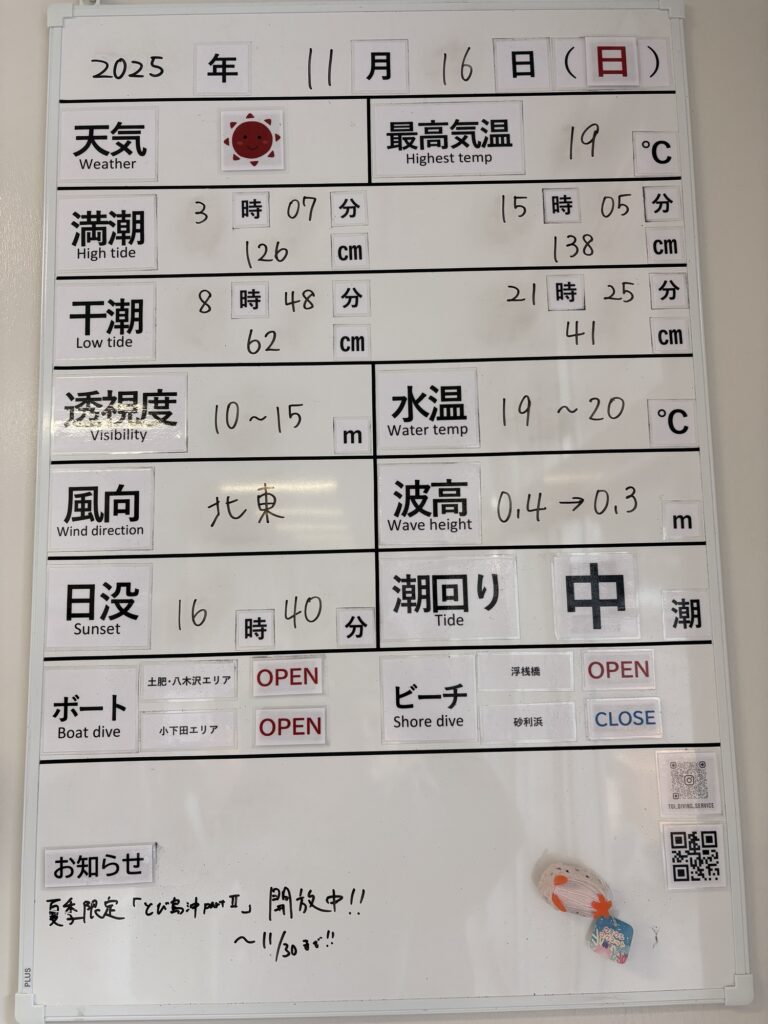 2025 年 11 月 16 日 (日)
天気 Weather
最高気温 Highest temp 19 ℃
満潮 High tide 3 時 07 分 126 cm 15 時 05 分 138 cm
干潮 Low tide 8 時 48 分 62 cm 21 時 25 分 41 cm
透視度 Visibility 10～15 m
水温 Water temp 19 ～20 ℃
風向 Wind direction 北東
波高 Wave height 0.4 → 0.3 m
日没 Sunset 16 時 40 分
潮回り Tide 中 潮
ボート Boat dive 土肥・八木沢エリア OPEN
小下田エリア OPEN
ビーチ Shore dive 浮桟橋 OPEN
砂利浜 CLOSE
TOI_DIVING_SERVICE
お知らせ
夏季限定「とび島沖 part Ⅱ」開放中!!
～11/30まで!!
PLUS